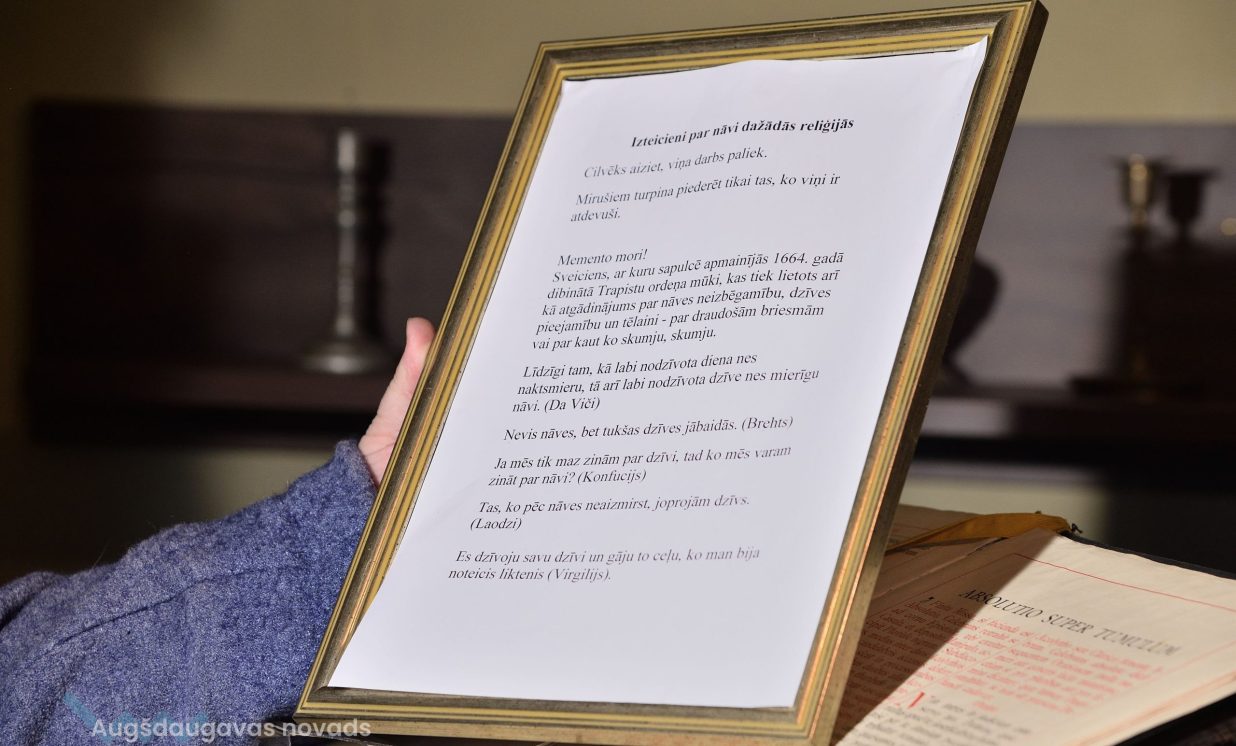 Izteicieni par nāvi dažādās reliģijās
Cilvēks aiziet, viņa darbs paliek.
Mirušiem turpina piederēt tikai tas, ko viņi ir
atdevuši.
Memento mori!
Sveiciens, ar kuru sapulcē apmainījās 1664. gadā
dibinātā Trapistu ordeņa mūki, kas tiek lietots arī
kā atgādinājums par nāves neizbēgamību, dzīves
pieejamību un tēlaini - par draudošām briesmām
vai par kaut ko skumju, skumju.
Līdzīgi tam, kā labi nodzīvota diena nes
naktsmieru, tā arī labi nodzīvota dzīve nes mierīgu
nāvi. (Da Viči)
Nevis nāves, bet tukšas dzīves jābaidās. (Brehts)
Ja mēs tik maz zinām par dzīvi, tad ko mēs varam
zināt par nāvi? (Konfucijs)
Tas, ko pēc nāves neaizmirst, joprojām dzīvs.
(Laodzi)
Es dzīvoju savu dzīvi un gāju to ceļu, ko man bija
noteicis liktenis (Virgilijs).
ABSOLUTIO SUPER TUMULUM
Augšdaugavas novads